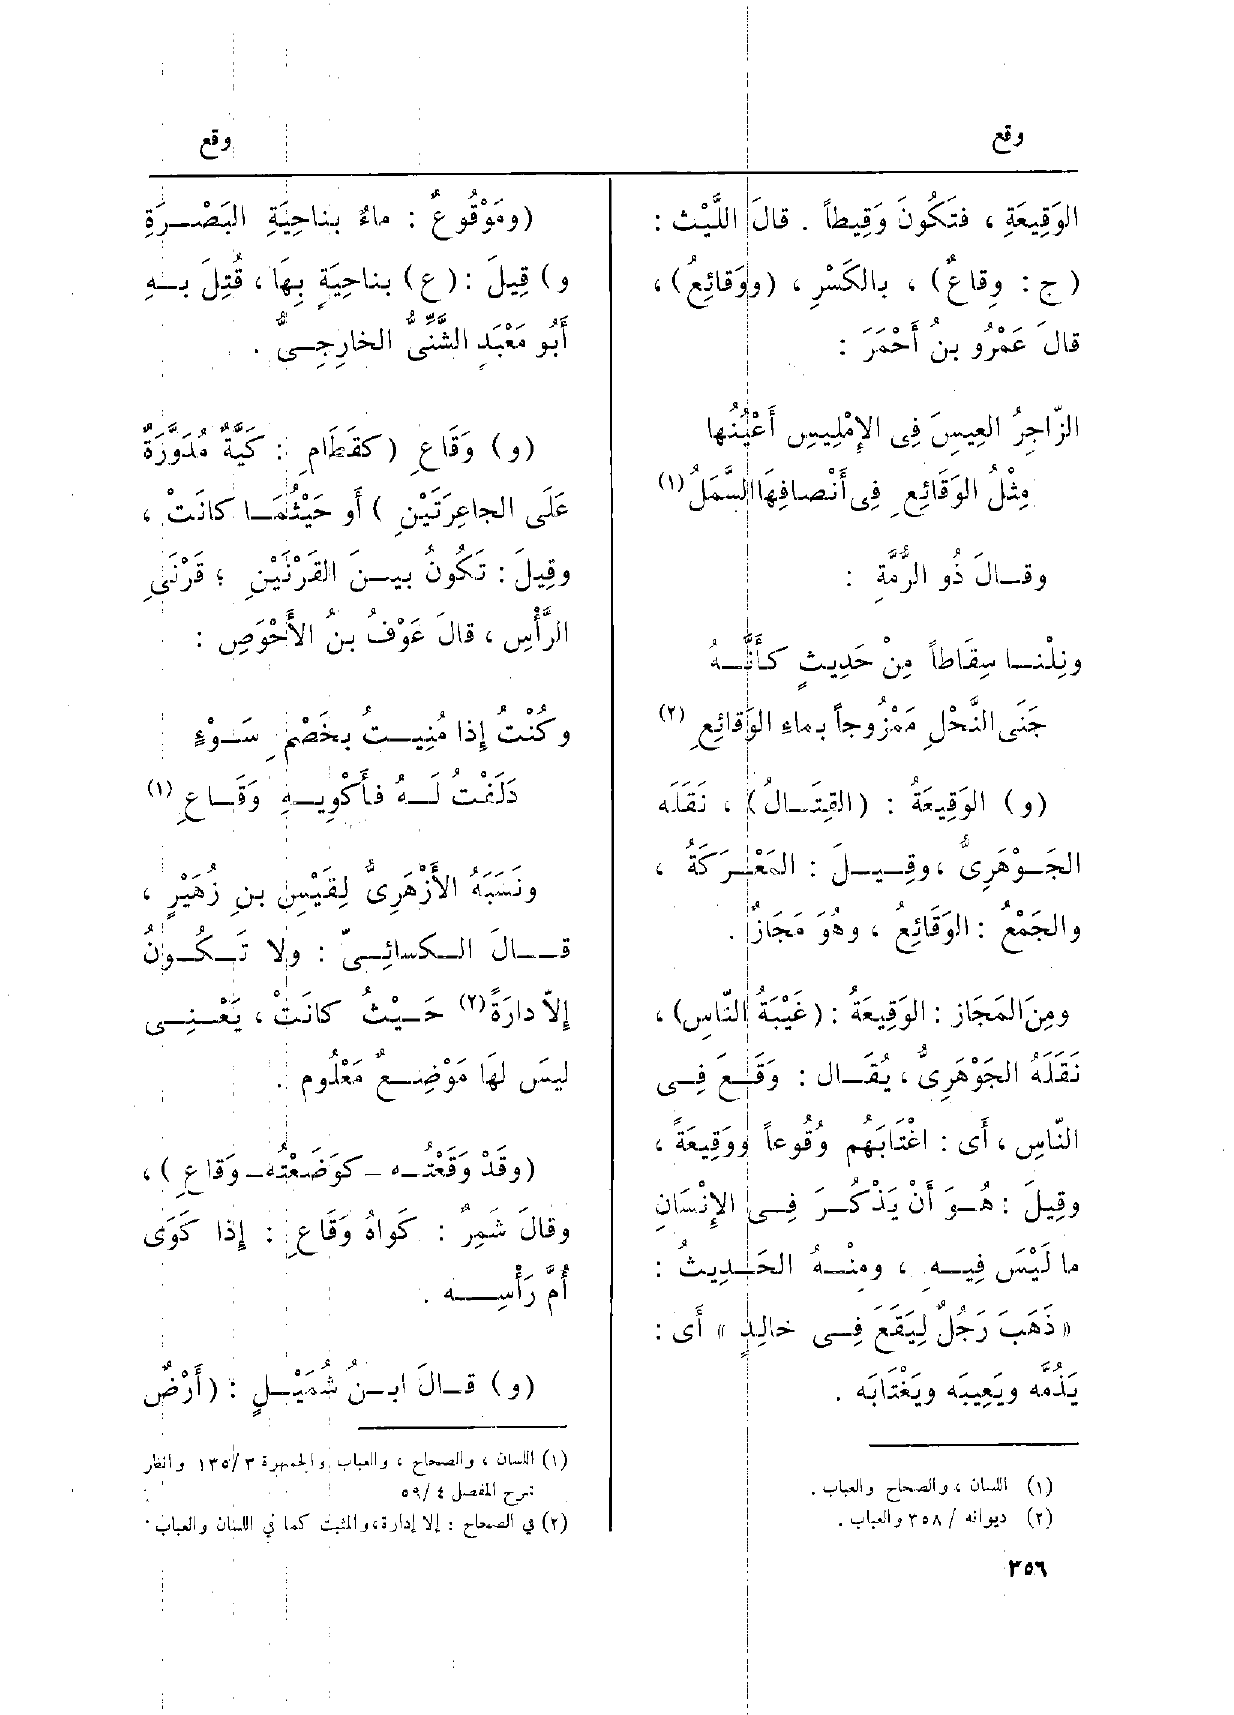 وقع
وقع
الوَقِيعَةِ ، فتَكُونَ وَقِيطاً . قالَ اللَّيْث :
( ج : وِقاعٌ ) ، بالكَسْرِ ، (ووَقائِعُ) ،
قالَ عَمْرُو بنُ أَحْمَرَ :
الزّاجِرُ العِيسَ فِى الإمْلِيسِ أَعْيُنُها
مِثْلُ الوَقائِعِ فِى أَنْصافِهَا السَّمَلُ (١)
وقـالَ ذُو الرُّمَّةِ :
ونِلْنـا سِقَاطاً مِنْ حَدِيثٍ كـأَنَّـهُ
جَنَى النَّحْلِ مَمْزُوجاً بماءِ الوَقائِعِ (٢)
(و) الوَقِيعَةُ : (القِتَـالُ) ، نَقَلَه
الجَـوْهَرِىُّ ، وقِـيـلَ : المَعْـرَكَةُ ،
والجَمْعُ : الوَقَائِعُ ، وهُوَ مَجَازٌ .
ومِنَ المَجَازِ : الوَقِيعَةُ : (غَيْبَةُ النَّاسِ) ،
نَقَلَهُ الجَوْهَرِىُّ ، يُقَـال : وَقَـعَ فِـى
النّاسِ ، أَى : اغْتَابَهُم وُقُوعاً ووَقِيعَةً ،
وقِيلَ : هُـوَ أَنْ يَذْكُـرَ فِـى الإِنْسَانِ
ما لَيْسَ فِيـهِ ، ومنْـهُ الحَـدِيثُ :
« ذَهَبَ رَجُلٌ لِيَقَعَ فِـى خالِدٍ » أَى :
يَذُمَّه ويَعِيبَه ويَغْتابَه .
(١) اللسان ، والصحاح والعباب .
(٢) ديوانه / ٣٥٨ والعباب .
(ومَوْقُوعٌ : ماءٌ بناحِيَةِ البَصْـرَةِ
و) قِيلَ : (ع) بناحِيَةٍ بِهَا ، قُتِلَ بـهِ
أَبُو مَعْبَدٍ الشَّنِّىُّ الخارِجِـىُّ .
(و) وَقَاعِ (كقَطَامِ : كَيَّةٌ مُدَوَّرَةٌ
عَلَى الجاعِرَتَيْنِ ) أو حَيْثُمَـا كانَتْ ،
وقِيلَ : تَكُونُ بيـنَ القَرْنَيْنِ ؛ قَرْنَىِ
الرَّأْسِ ، قالَ عَوْفُ بنُ الأَحْوَصِ :
وكُنْتُ إذا مُنِيـتُ بخَصْمِ سَـوْءٍ
دَلَفْتُ لَـهُ فأَكْوِيـهِ وَقَـاعِ (١)
ونَسَبَهُ الأَزْهَرِىُّ لِقَيْسِ بنِ زُهَيْرٍ ،
قـالَ الـكسائِـىّ : ولا تَـكُـونُ
إلاّ دارَةً (٢) حَـيْثُ كانَتْ ، يَعْـنِـى
ليسَ لهَا مَوْضِـعٌ مَعْلُوم .
(وقَدْ وَقَعْتـه - كوَضَعْتُه- وَقاعِ ) ،
وقالَ شَمِرٌ : كَواهُ وَقَاعِ : إذا كَوَى
أُمَّ رَأْسِـه .
(و) قـالَ ابـنُ شُمَيْـلٍ : (أَرْضٌ
(١) اللسان ، والصحاح ، والعباب والجمهرة ٣/ ١٣٥ وانظر
شرح المفصل ٤ /٥٩
(٢) في الصحاح : إلا إدارة، والمثبت كما في اللسان والعباب .
٣٥٦